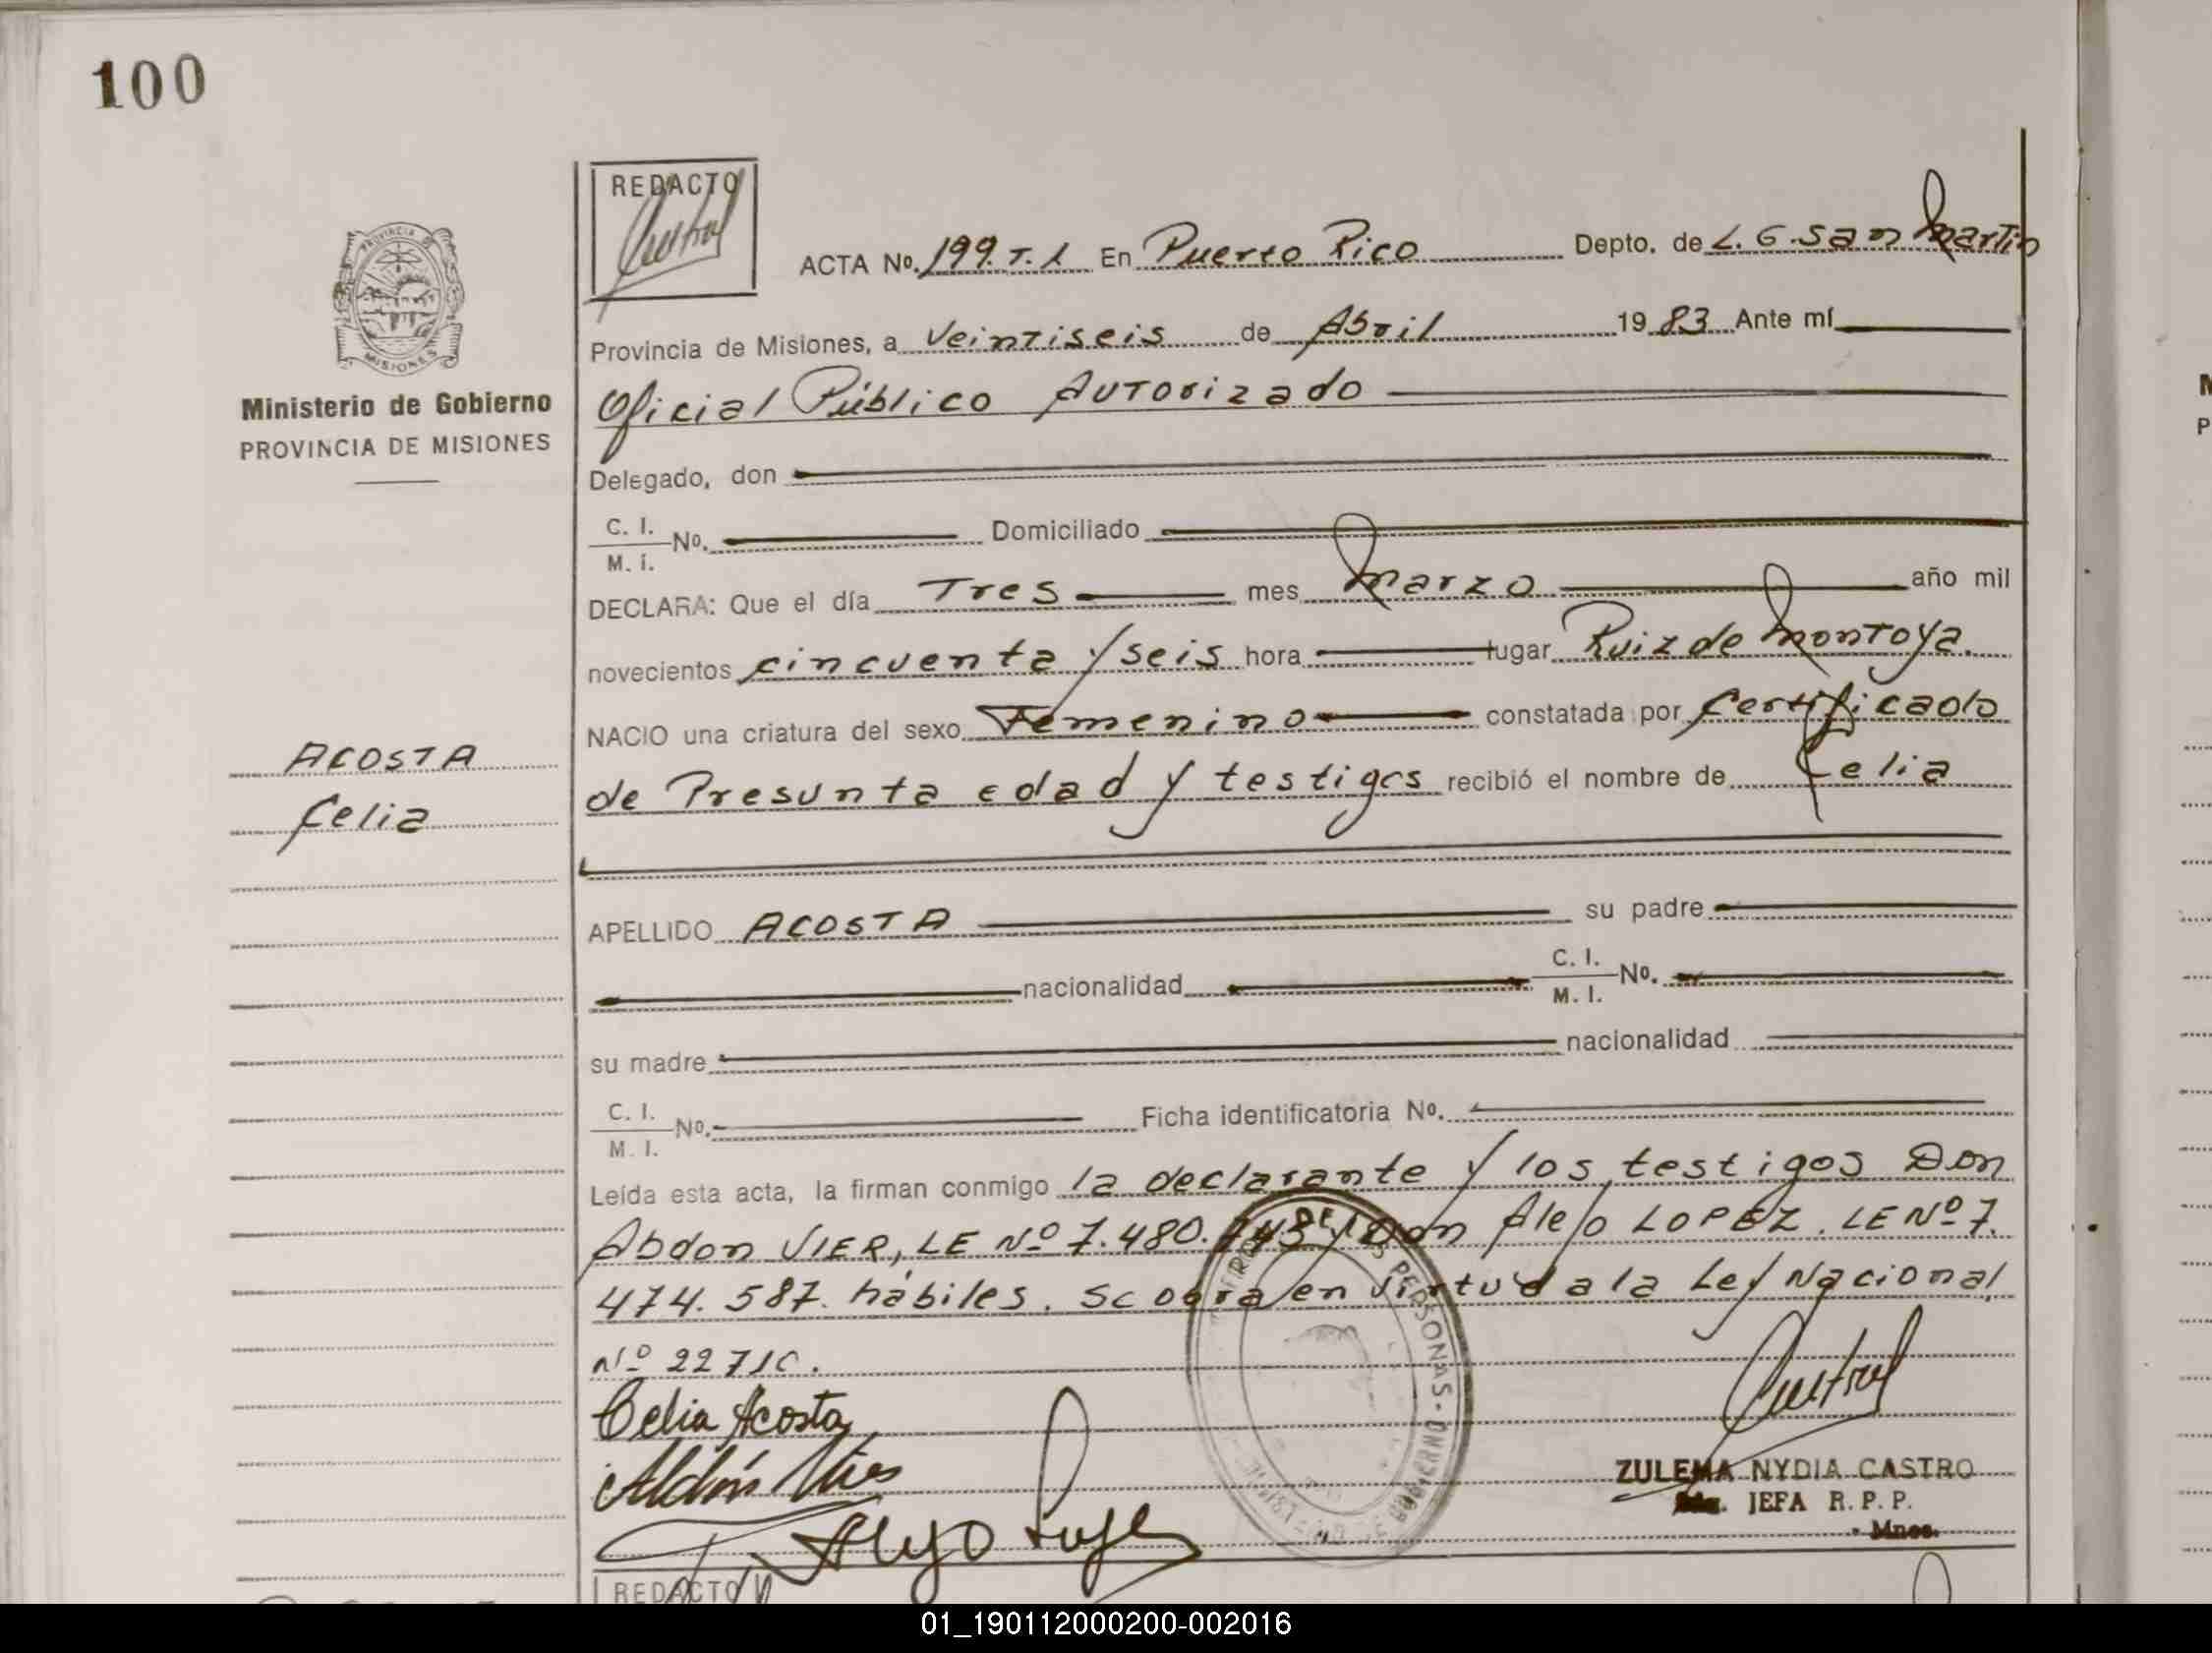 100
REDACTO
ACTA No. 199. T. 1 En Puerto Rico Depto. de L. G. San Martin
PROVINCIA DE
MISIONES
Provincia de Misiones, a Veintiseis de Abril 1983 Ante mí
Ministerio de Gobierno
PROVINCIA DE MISIONES
Oficial Público Autorizado
Delegado, don
C. I.
M. i.
No. Domiciliado
DECLARA: Que el día Tres mes Marzo año mil
novecientos cincuenta y seis hora lugar Ruiz de Montoya.
NACIO una criatura del sexo Femenino constatada por Certificado
ACOSTA
Celia
de Presunta edad y testigos recibió el nombre de Celia
APELLIDO ACOSTA su padre
nacionalidad C. I.
M. I.
No.
su madre nacionalidad
C. I.
M. I.
No. Ficha identificatoria No.
Leída esta acta, la firman conmigo la declarante y los testigos Don
Abdon VIER, LE Nº 7.480. y Don Alejo LOPEZ. LE Nº 7.
474. 587. hábiles. Se obra en virtud a la Ley Nacional
Nº
Celia Acosta
Abdón Vier
Alejo
DE LAS PERSONAS
ZULEMA NYDIA CASTRO
JEFA R. P. P.
Mnes.
REDACTO
M
P
01_190112000200-002016